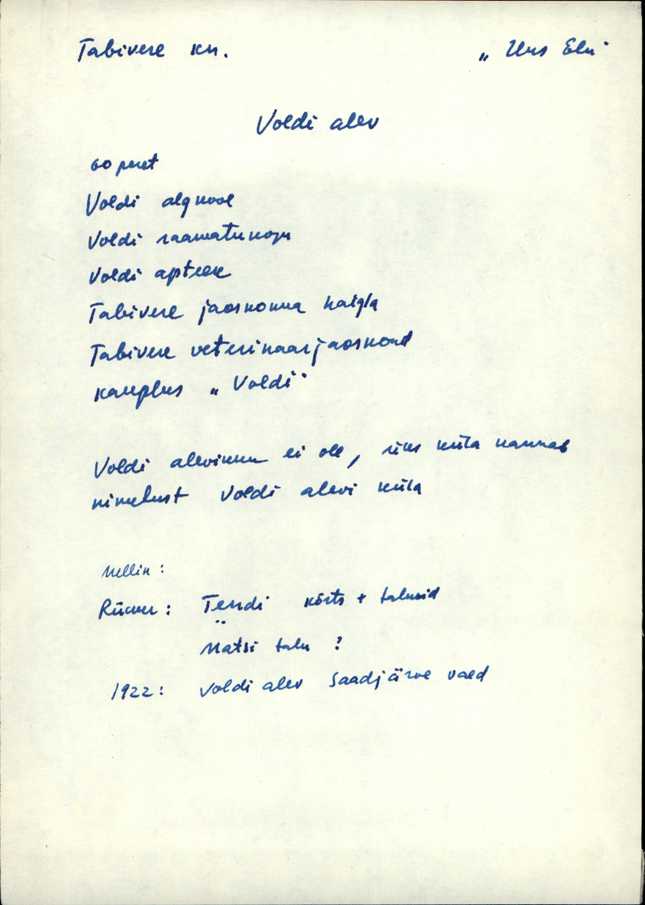 Tabivere kn. „Uus Elu"
Voldi alev
60 peret
Voldi algkool
Voldi raamatukogu
Voldi apteek
Tabivere jaoskonna haigla
Tabivere veterinaarjaoskond
kauplus „Voldi"
Voldi alevikku ei ole, üks küla kannab
nimetust Voldi alevi küla
Mellin:
Rücker: Tendi kõrts + talusid
Matsi talu ?
1922: Voldi alev Saadjärve vald